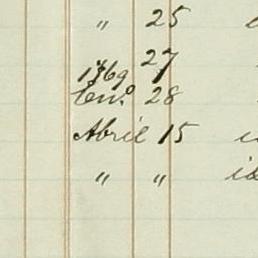 " 25
27
1869
Enº 28
Abril 15
" "